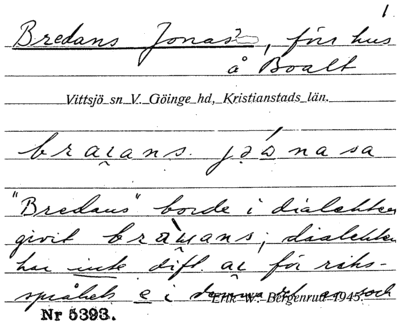 1
Bredans Jonas, förr hus
å Boalt
Vittsjö sn V. Göinge hd, Kristianstads län.
braians. jånasa
"Bredans" borde i dialekten
givit bràu̯ans; dialekten
har inte dift. ai för riks-
språkets e i och
Erik W. Bergenrud 1945.
Nr 5393.